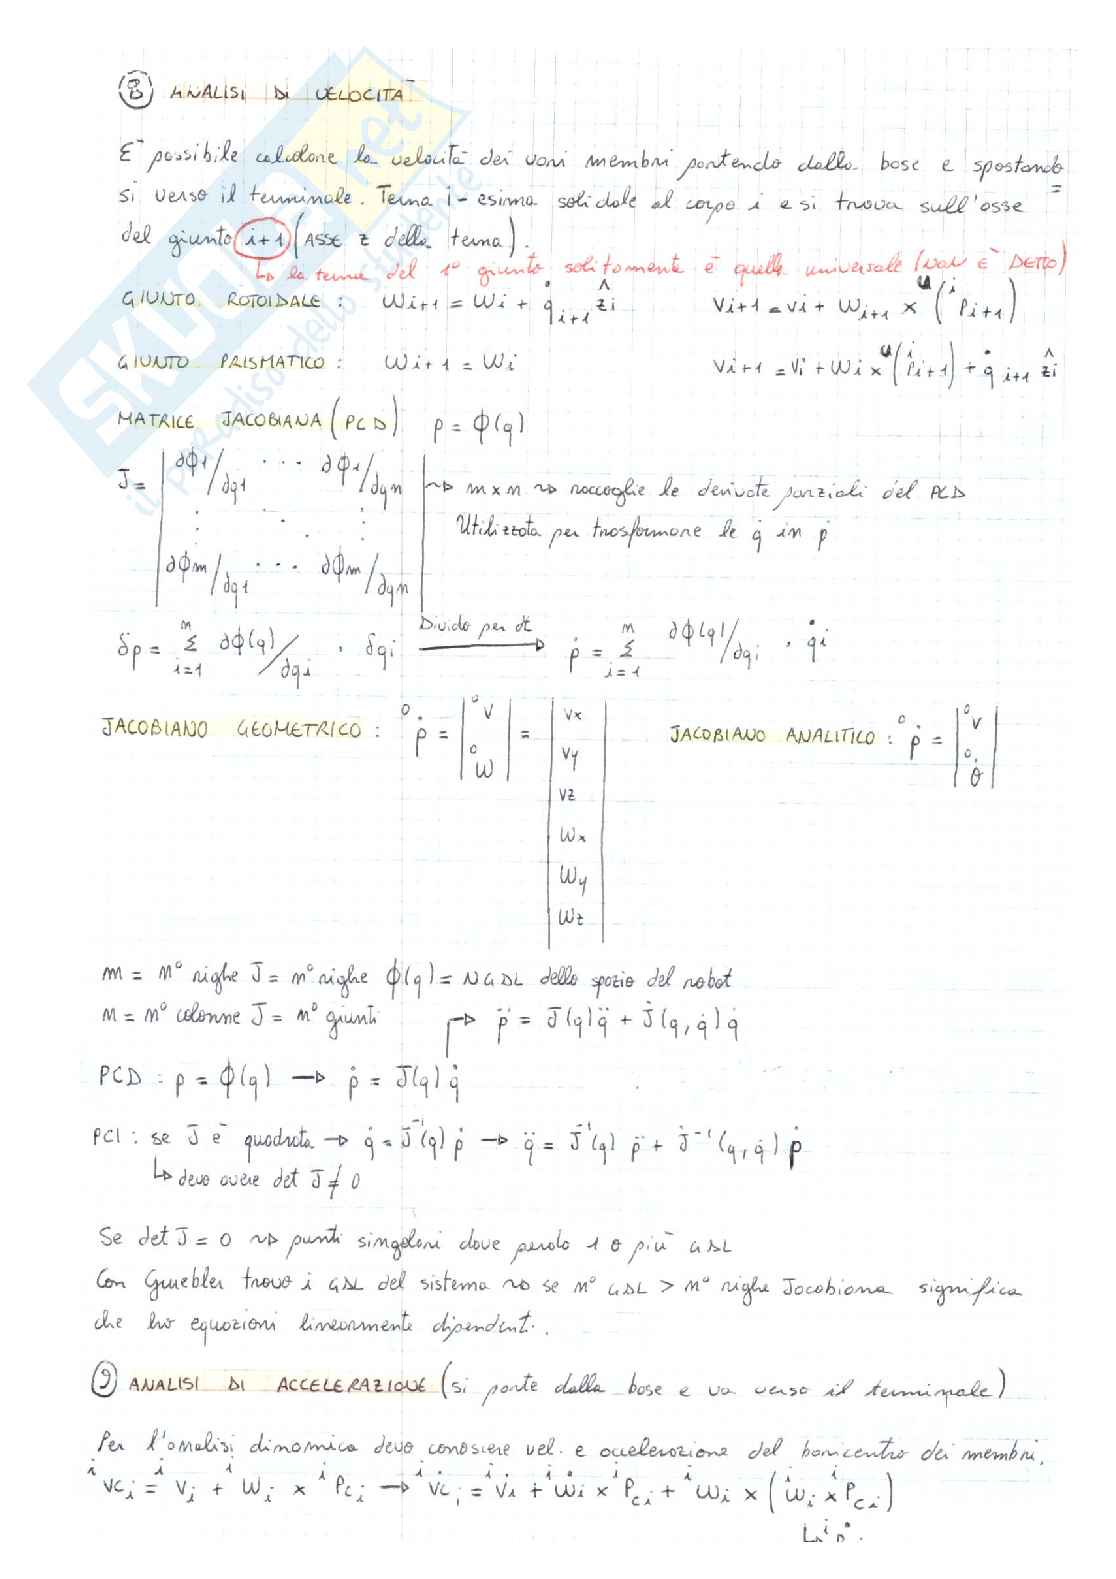 ⑧ ANALISI DI VELOCITÀ
È possibile calcolare la velocità dei vari membri partendo dalla base e spostando
si verso il terminale. Terna i-esima solidale al corpo i e si trova sull'asse
del giunto i+1 (ASSE z della terna).
↳ la terna del 1° giunto solitamente è quella universale (NON È DETTO)
GIUNTO ROTOIDALE : ωi+1 = ωi + q̇i+1 ẑi    vi+1 = vi + ωi+1 × ᵘ(ⁱpi+1)
GIUNTO PRISMATICO : ωi+1 = ωi    vi+1 = vi + ωi × ᵘ(ⁱpi+1) + q̇i+1 ẑi
MATRICE JACOBIANA (PCD) p = ϕ(q)
J = | ∂ϕ1/∂q1 ··· ∂ϕ1/∂qn | ⇝ m×n ⇝ raccoglie le derivate parziali del PCD
Utilizzata per trasformare le q̇ in ṗ
| ∂ϕm/∂q1 ··· ∂ϕm/∂qn |
δp = Σ i=1 n ∂ϕ(q)/∂qi · δqi  Divido per dt → ṗ = Σ i=1 n ∂ϕ(q)/∂qi · q̇i
JACOBIANO GEOMETRICO : ⁰ṗ = | ⁰v ⁰ω | = | vx vy vz ωx ωy ωz |    JACOBIANO ANALITICO : ⁰ṗ = | ⁰v ⁰θ̇ |
m = n° righe J = n° righe ϕ(q) = N GDL dello spazio del robot
n = n° colonne J = n° giunti    ↱ p̈ = J(q)q̈ + J̇(q, q̇)q̇
PCD : p = ϕ(q) → ṗ = J(q)q̇
PCI : se J è quadrata → q̇ = J⁻¹(q) ṗ → q̈ = J⁻¹(q) p̈ + J̇⁻¹(q, q̇) ṗ
↳ devo avere det J ≠ 0
Se det J = 0 ⇝ punti singolari dove perdo 1 o più GDL
Con Gruebler trovo i GDL del sistema ⇝ se n° GDL > n° righe Jacobiana significa
che ho equazioni linearmente dipendenti.
⑨ ANALISI DI ACCELERAZIONE (si parte dalla base e va verso il terminale)
Per l'analisi dinamica devo conoscere vel. e accelerazione del baricentro dei membri.
ⁱvci = ⁱvi + ⁱωi × ⁱpci → ⁱv̇ci = ⁱv̇i + ⁱω̇i × ⁱpci + ⁱωi × (ⁱωi × ⁱpci)
SKUOLA.net
il paradiso dello studente